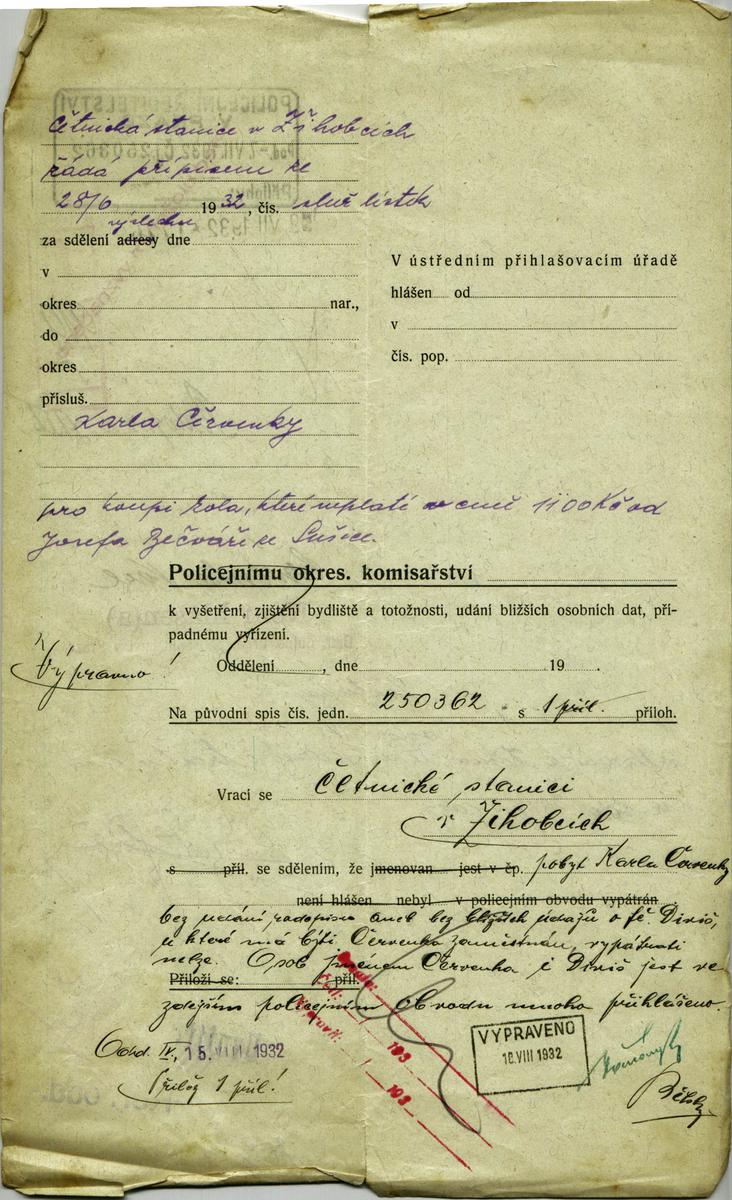 četnická stanice v Žihobcích
řádá přípisem ze
28/6 1932, čís. služ lístek
výslechu
za sdělení adresy dne
v
okres nar.,
do
okres
přísluš.
Karla Červenky
V ústředním přihlašovacím úřadě
hlášen od
v
čís. pop.
pro koupi kola, které neplatí v ceně 1100 Kč od
Josefa Bečváře ze Sušice.
Policejnímu okres. komisařství
k vyšetření, zjištění bydliště a totožnosti, udání bližších osobních dat, pří-
padnému vyřízení.
Výpravno!
Oddělení, dne 19 .
Na původní spis čís. jedn. 250362 s 1 příl. příloh.
Vrací se Četnické stanici
v Žihobcích
s příl. se sdělením, že jmenovan jest v čp. pobyt Karla Červenky
není hlášen nebyl v policejním obvodu vypátrán
bez udání radopisu aneb bez bližších údajů o fě. Diviš,
u které má býti Červenka zaměstnán, vypátrati
nelze. Osob jménem Červenka i Diviš jest ve
Přiloží se: příl.
zdejším policejním obvodu mnoho přihlášeno.
Odd. IV, 15. VIII 1932
Přilož 1 příl!
193
193
VYPRAVENO
18. VIII 1932